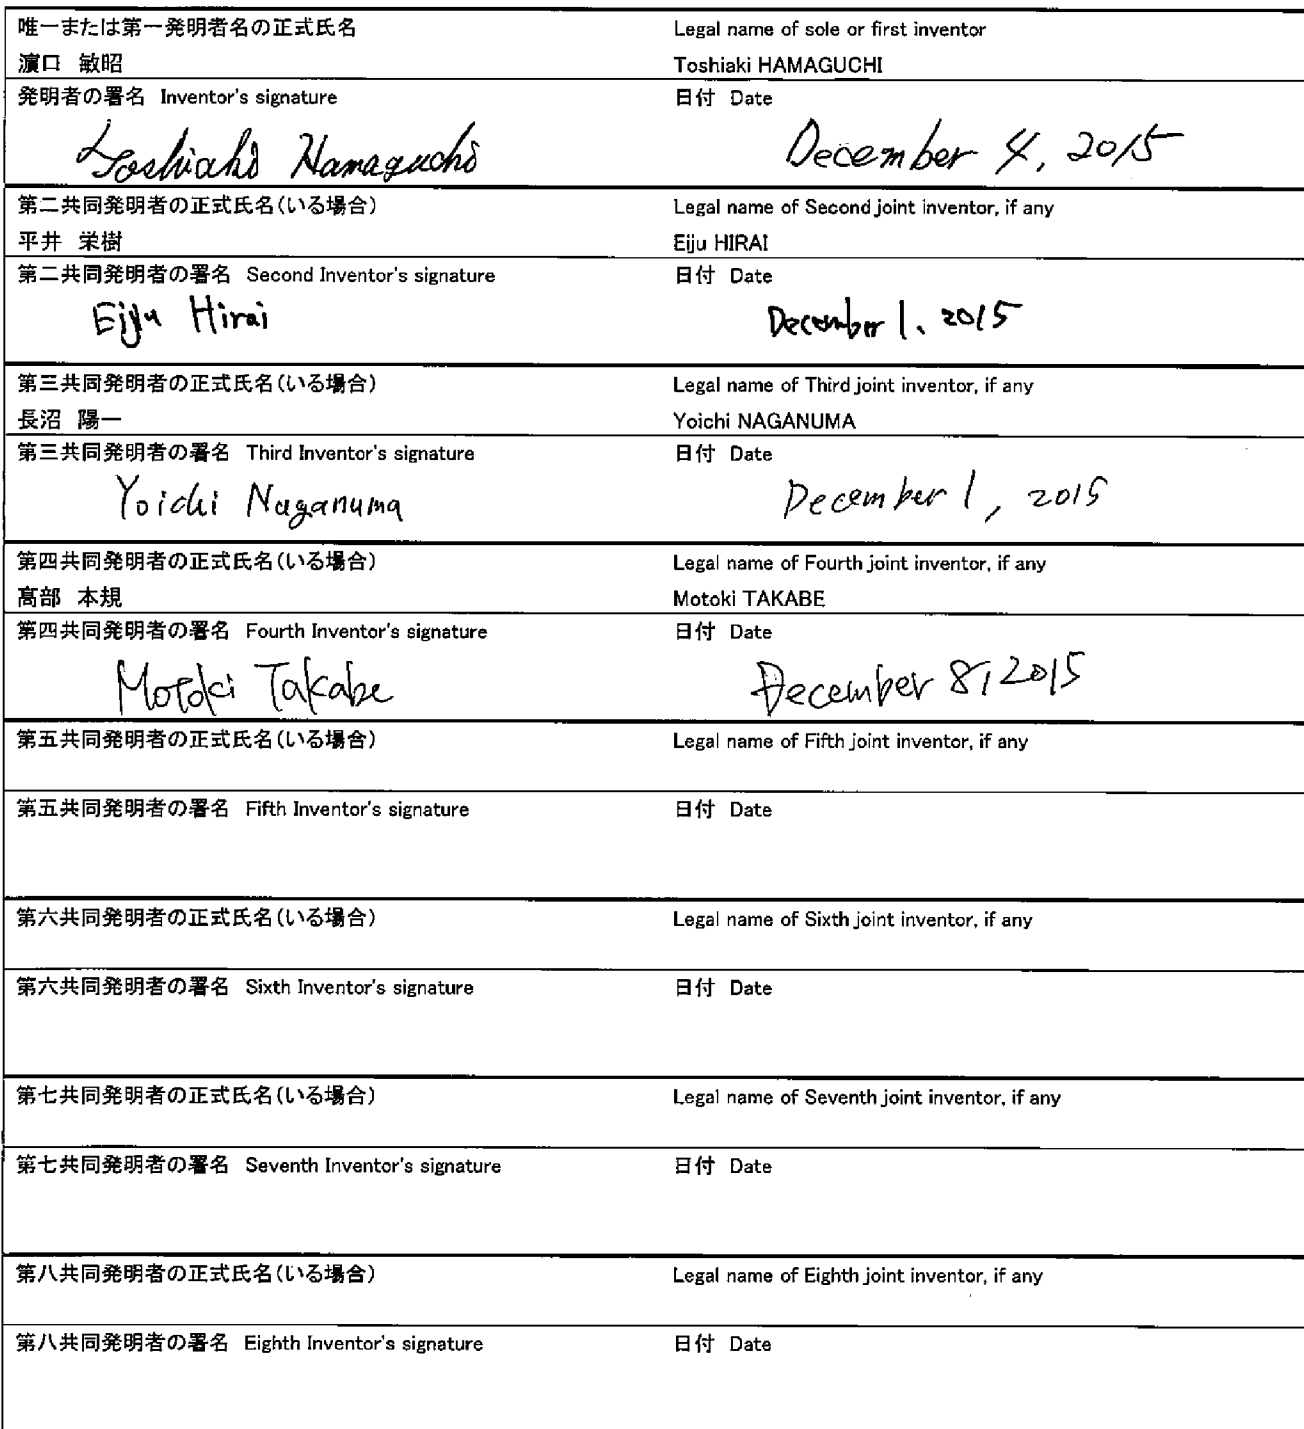 唯一または第一発明者名の正式氏名 Legal name of sole or first inventor
濵口 敏昭 Toshiaki HAMAGUCHI
発明者の署名 Inventor's signature 日付 Date
Toshiaki Hamaguchi December 4, 2015
第二共同発明者の正式氏名(いる場合) Legal name of Second joint inventor, if any
平井 栄樹 Eiju HIRAI
第二共同発明者の署名 Second Inventor's signature 日付 Date
Eiju Hirai December 1、2015
第三共同発明者の正式氏名(いる場合) Legal name of Third joint inventor, if any
長沼 陽一 Yoichi NAGANUMA
第三共同発明者の署名 Third Inventor's signature 日付 Date
Yoichi Naganuma December 1, 2015
第四共同発明者の正式氏名(いる場合) Legal name of Fourth joint inventor, if any
髙部 本規 Motoki TAKABE
第四共同発明者の署名 Fourth Inventor's signature 日付 Date
Motoki Takabe December 8, 2015
第五共同発明者の正式氏名(いる場合) Legal name of Fifth joint inventor, if any
第五共同発明者の署名 Fifth Inventor's signature 日付 Date
第六共同発明者の正式氏名(いる場合) Legal name of Sixth joint inventor, if any
第六共同発明者の署名 Sixth Inventor's signature 日付 Date
第七共同発明者の正式氏名(いる場合) Legal name of Seventh joint inventor, if any
第七共同発明者の署名 Seventh Inventor's signature 日付 Date
第八共同発明者の正式氏名(いる場合) Legal name of Eighth joint inventor, if any
第八共同発明者の署名 Eighth Inventor's signature 日付 Date